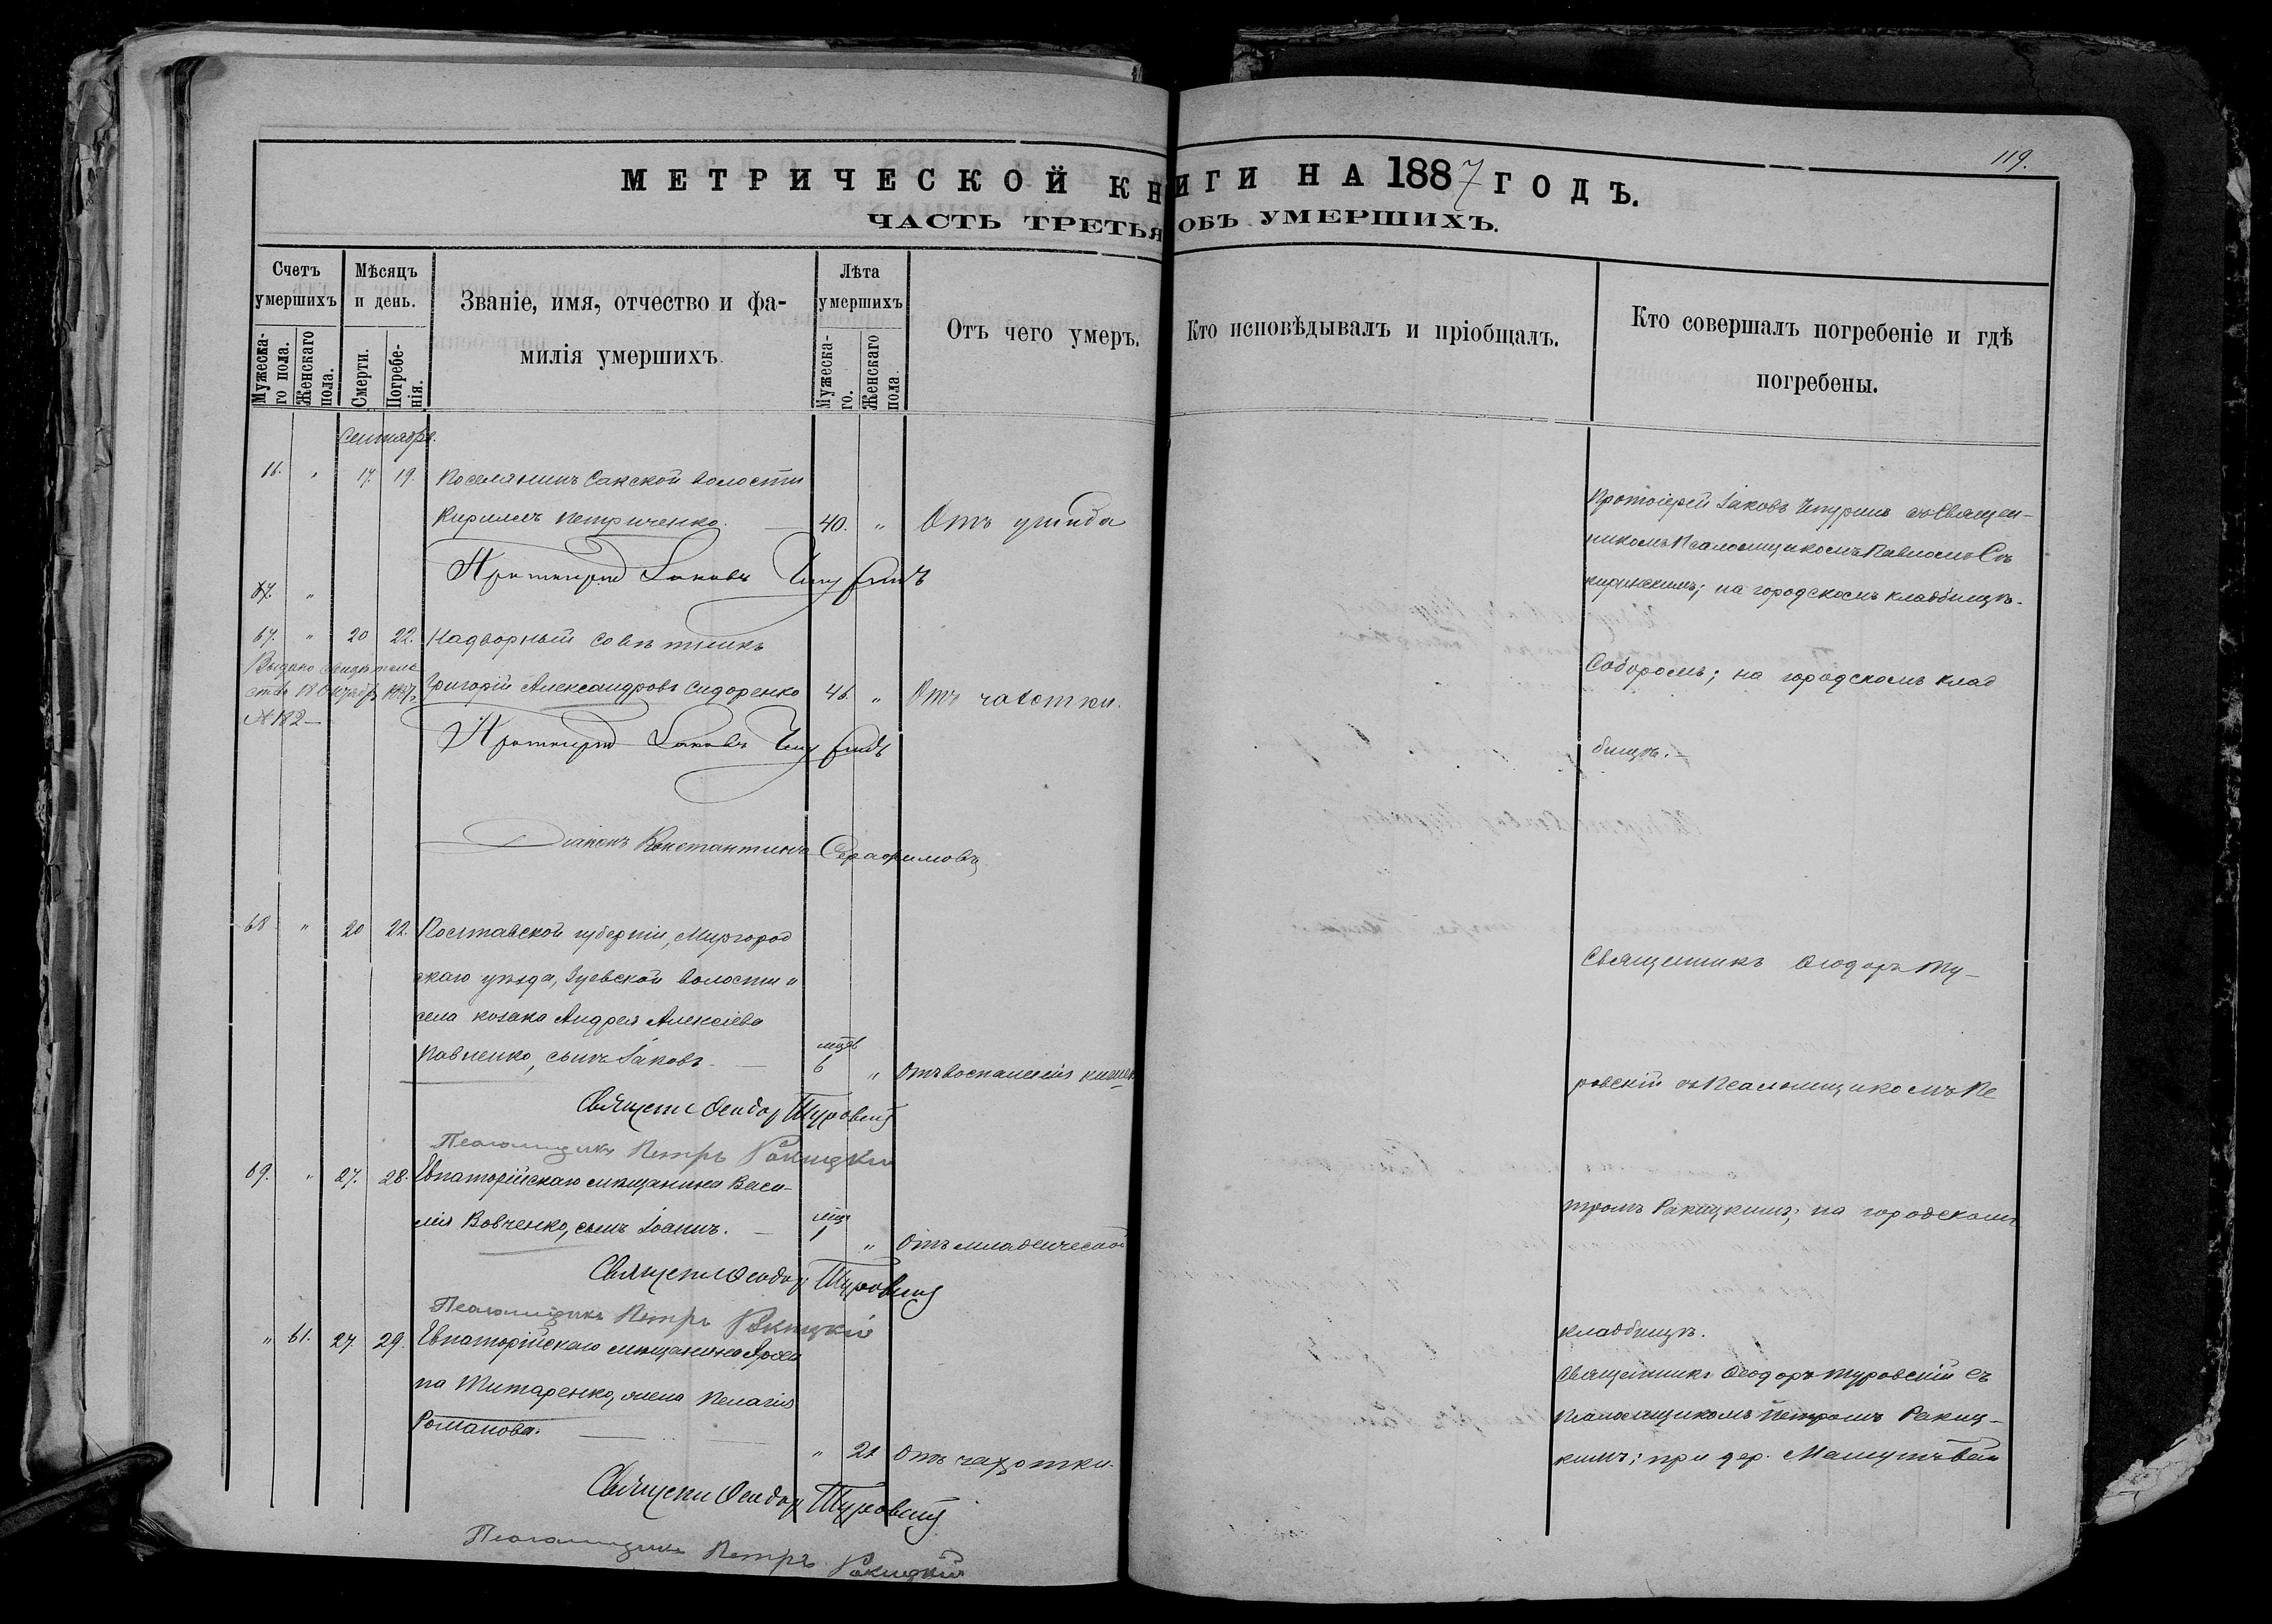 119.
МЕТРИЧЕСКОЙ КНИГИ НА 1887 ГОДЪ.
ЧАСТЬ ТРЕТЬЯ ОБЪ УМЕРШИХЪ.
Счетъ умершихъ
Мужескаго пола.
Женскаго пола.
Мѣсяцъ и день.
Смерти.
Погребенія.
Званіе, имя, отчество и фа-
милія умершихъ
Лѣта умершихъ
Мужескаго.
Женскаго пола.
Отъ чего умеръ.
Кто исповѣдывалъ и пріобщалъ.
Кто совершалъ погребеніе и гдѣ
погребены.
Сентябрь.
66. " 17. 19. Поселянинъ Сакской волости
Кириллъ Петриченко. 40. " Отъ ушиба
Протоіерей Іаковъ Чепуринъ
Протоіерей Іаковъ Чепуринъ съ Священ-
никомъ Псаломщикомъ Павломъ
на городскомъ кладбищѣ.
67. "
67. " 20 22. Надворный Совѣтникъ
Григорій Александровъ Сидоренко 46. " Отъ чахотки.
Выдано свидѣтель
ство 18 Октября 1887г.
№ 182
Протоіерей Іаковъ Чепуринъ
Соборомъ; на городскомъ клад
бищѣ.
Діаконъ Константинъ Серафимовъ
68 " 20 22. Полтавской губерніи, Миргород
скаго уѣзда, Зуевской волости и
села козака Андрея Алексіева
Павленко, сынъ Іаковъ. мцев 6 " Отъ воспаленія кишек
Священн Ѳеодор Туровскій
Псаломщикъ Петръ Ракицкій
Священникъ Ѳеодоръ Ту-
ровскій съ Псаломщикомъ Пе
тромъ Ракицкимъ; на городскомъ
кладбищѣ.
69. " 27. 28. Евпаторійскаго мѣщанина Васи-
лія Вовченко, сынъ Іоаннъ. мц 1 " Отъ младенческой
Священн Ѳеодор Туровскій
Псаломщикъ Петръ Ракицкій
" 61. 27. 29. Евпаторійскаго мѣщанина
на Титаренко, жена Пелагія
Романова. " 21 Отъ чахотки.
Священн Ѳеодор Туровскій
Псаломщикъ Петръ Ракицкій
Священникъ Ѳеодоръ Туровскій съ
Псаломщикомъ Петромъ Ракиц-
кимъ; при дер.